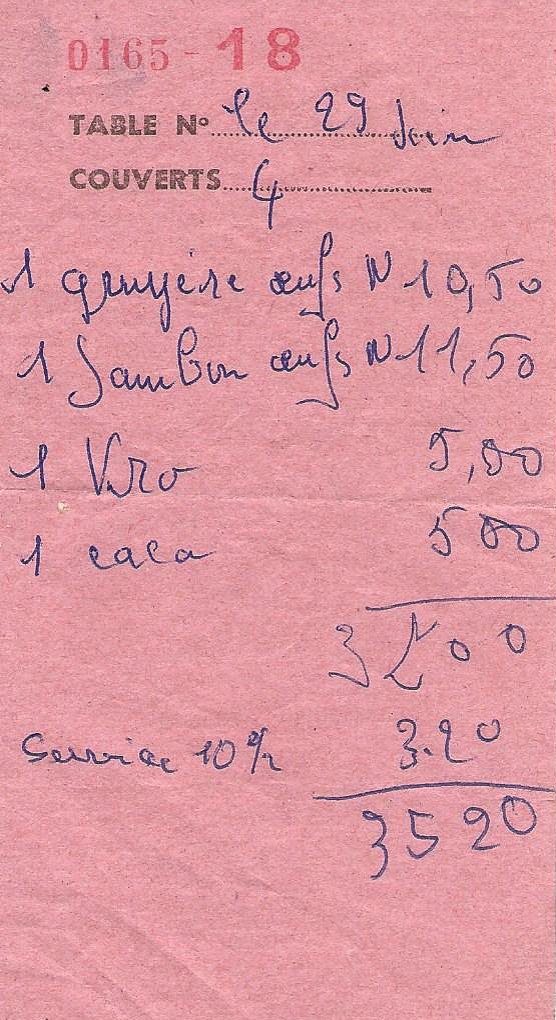 0165-18
TABLE N° le 29 Juin
COUVERTS 4
1 gruyère œufs N 10,50
1 Jambon œufs N 11,50
1 5,00
1 coca 5 00
32 00
Service 10% 3.20
35 20